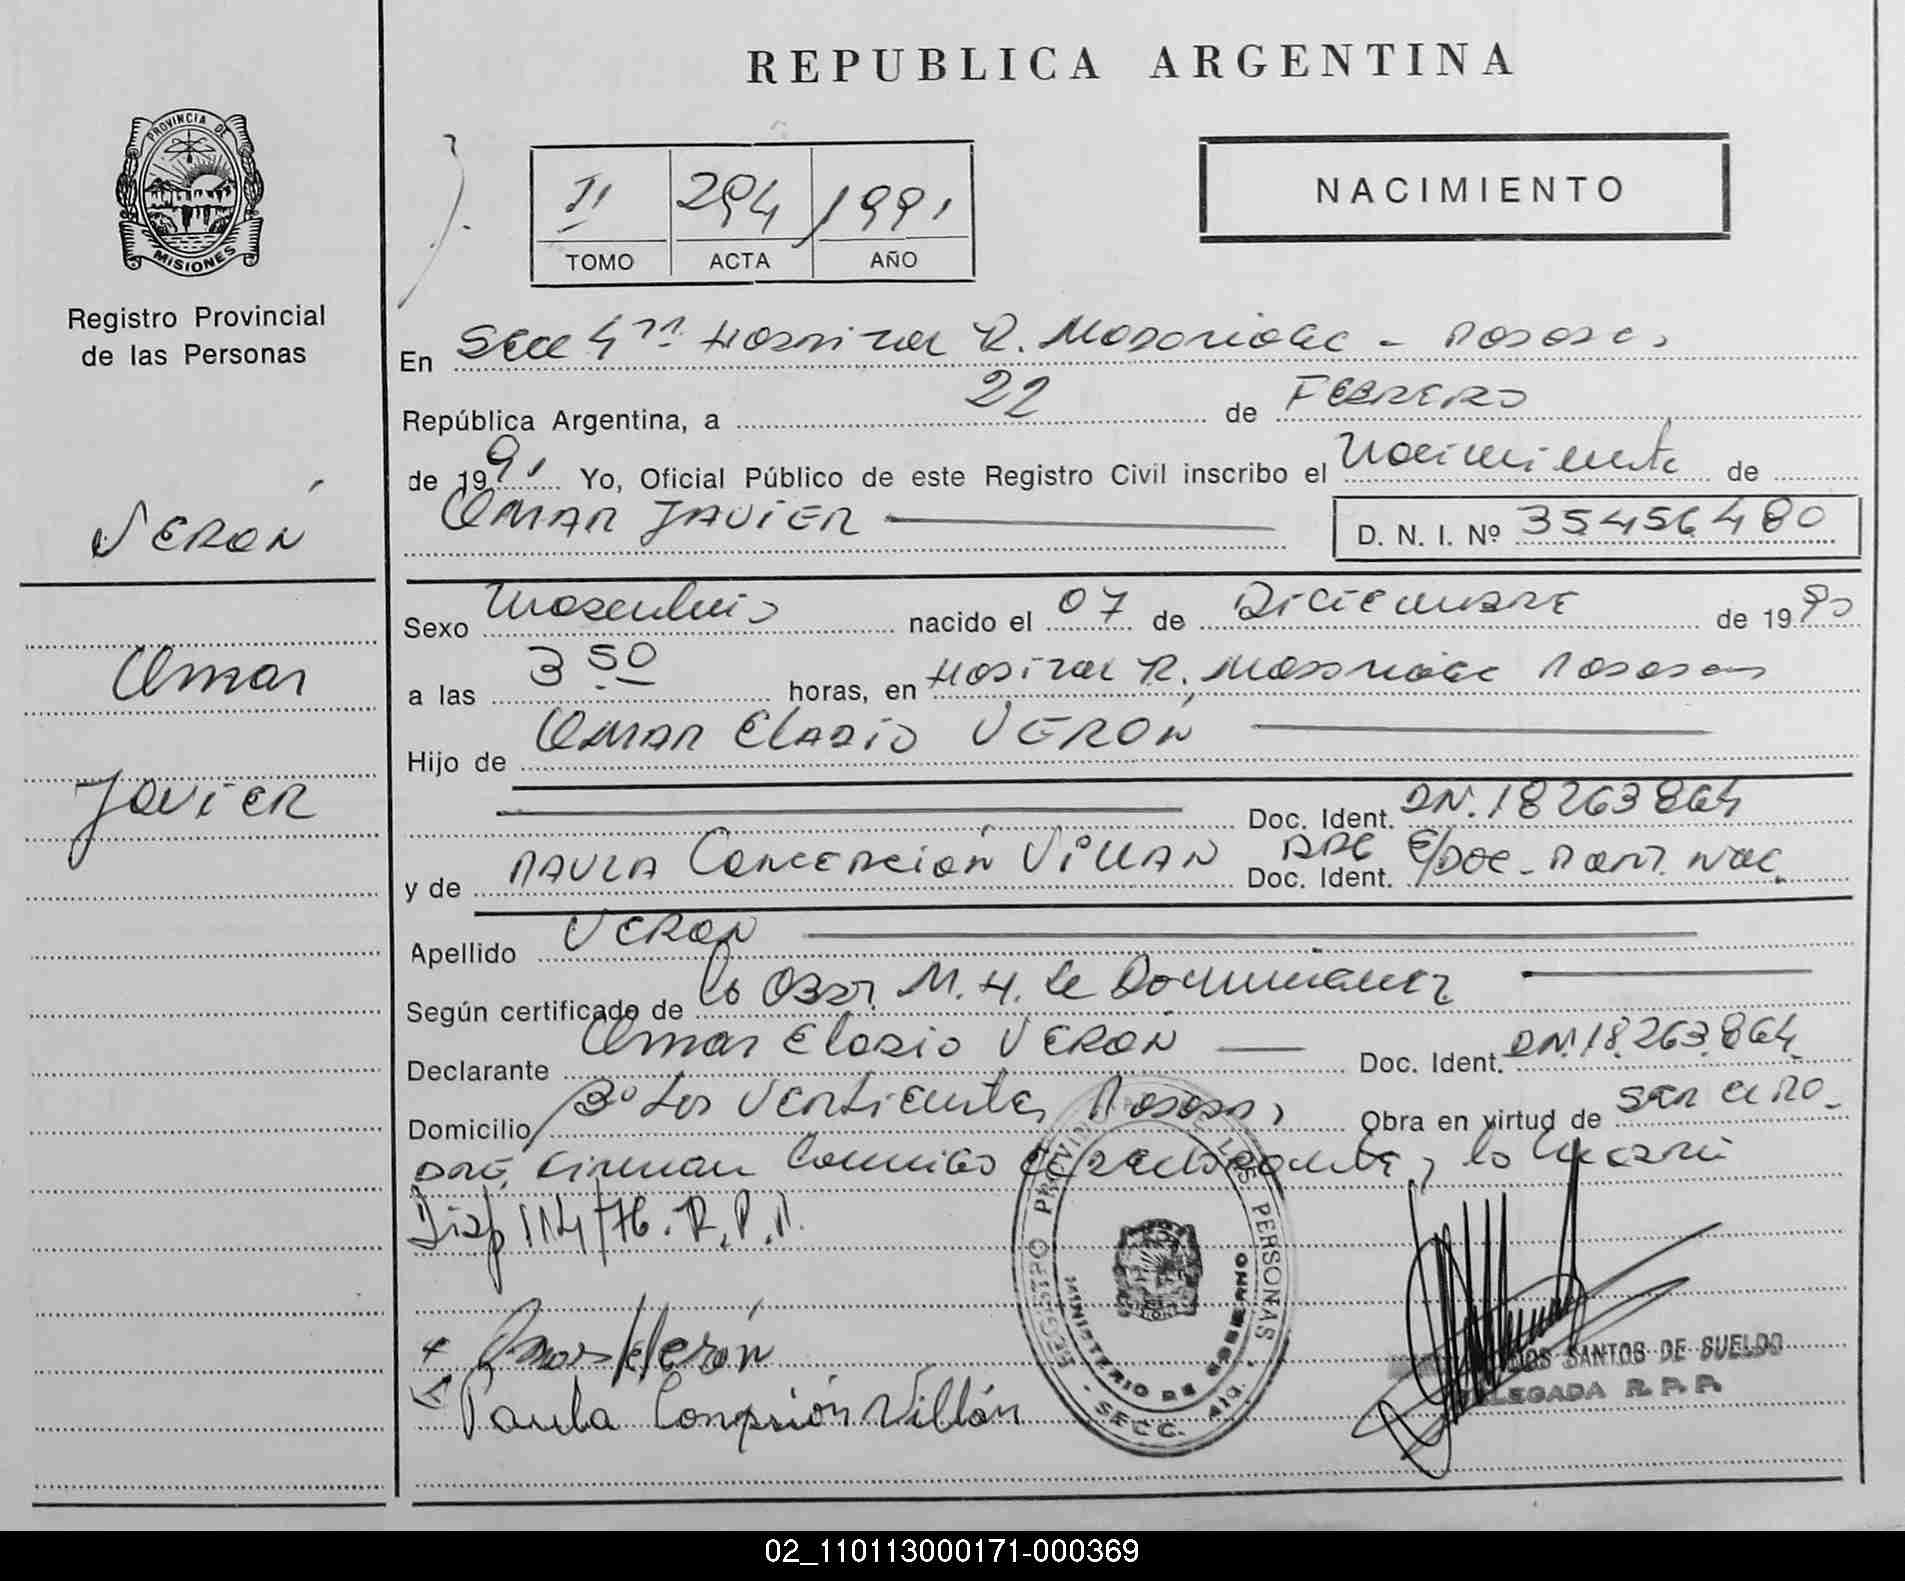 REPUBLICA ARGENTINA
PROVINCIA DE
MISIONES
Registro Provincial
de las Personas
II 294 1991
TOMO ACTA AÑO
NACIMIENTO
En Secc 4ta Hospital R. Madariaga - Posadas,
República Argentina, a 22 de FEBRERO
de 1991 Yo, Oficial Público de este Registro Civil inscribo el Nacimiento de
OMAR JAVIER
D. N. I. Nº 35456480
VERÓN
Omar
JAVIER
Sexo Masculino nacido el 07 de DICIEMBRE de 1990
a las 3 50 horas, en Hospital R. Madariaga Posadas
Hijo de OMAR Eladio VERÓN
Doc. Ident. DN. 18263864
y de PAULA CONCEPCIÓN VILLAN Doc. Ident. S/DOC.
Apellido VERÓN
Según certificado de la Obst. M. H. de Dominguez
Declarante Omar Eladio VERÓN Doc. Ident. DN. 18.263.864
Domicilio Bº Las Vertientes, Posadas, Obra en virtud de ser el PA-
DRE, Firman Conmigo el declarante, y la
Disp 114/76. R.P.P.
Omar Verón
Paula Concepción Villán
REGISTRO PROVINCIAL DE LAS PERSONAS
MINISTERIO DE GOBIERNO
SECC.
DOS SANTOS DE SUELDO
DELEGADA R.P.P.
02_110113000171-000369